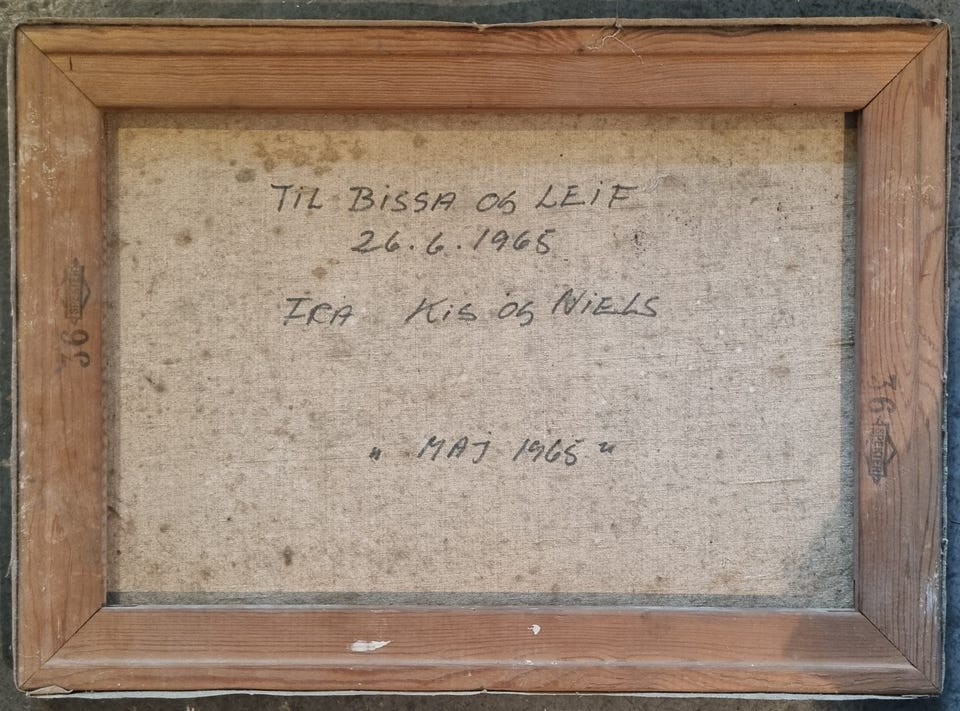 TiL BiSSA OG LEiF
26.6.1965
IRA KiS OG NiELS
" MAJ 1965 "
36
36